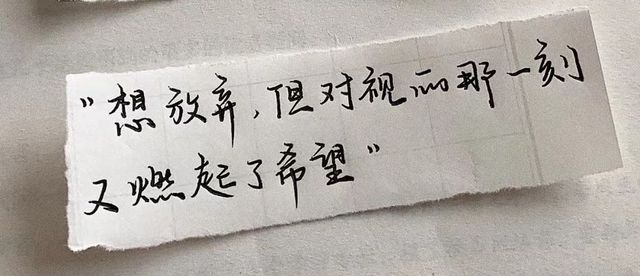 "想放弃,但对视的那一刻
又燃起了希望"